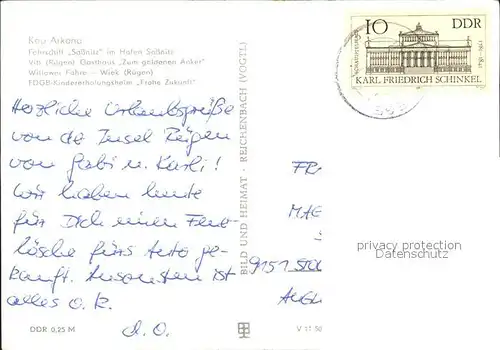 Kap Arkona
Fährschiff „Saßnitz" im Hafen Saßnitz
Vitt (Rügen) Gasthaus „Zum goldenen Anker"
Wittower Fähre – Wiek (Rügen)
FDGB-Kindererholungsheim „Frohe Zukunft"
Herzliche Urlaubsgrüße
von der Insel Rügen
von Gabi u. Karli!
Wir haben heute
für Dich einen Feue-
löscher fürs Auto ge-
kauft. Ansonsten ist
alles o.k.
DDR 0,25 M
BILD UND HEIMAT · REICHENBACH (VOGTL)
V 11 50
10 DDR
SCHAUSPIELHAUS
1781–1841
KARL FRIEDRICH SCHINKEL
FR
MAG
9151
privacy protection
Datenschutz